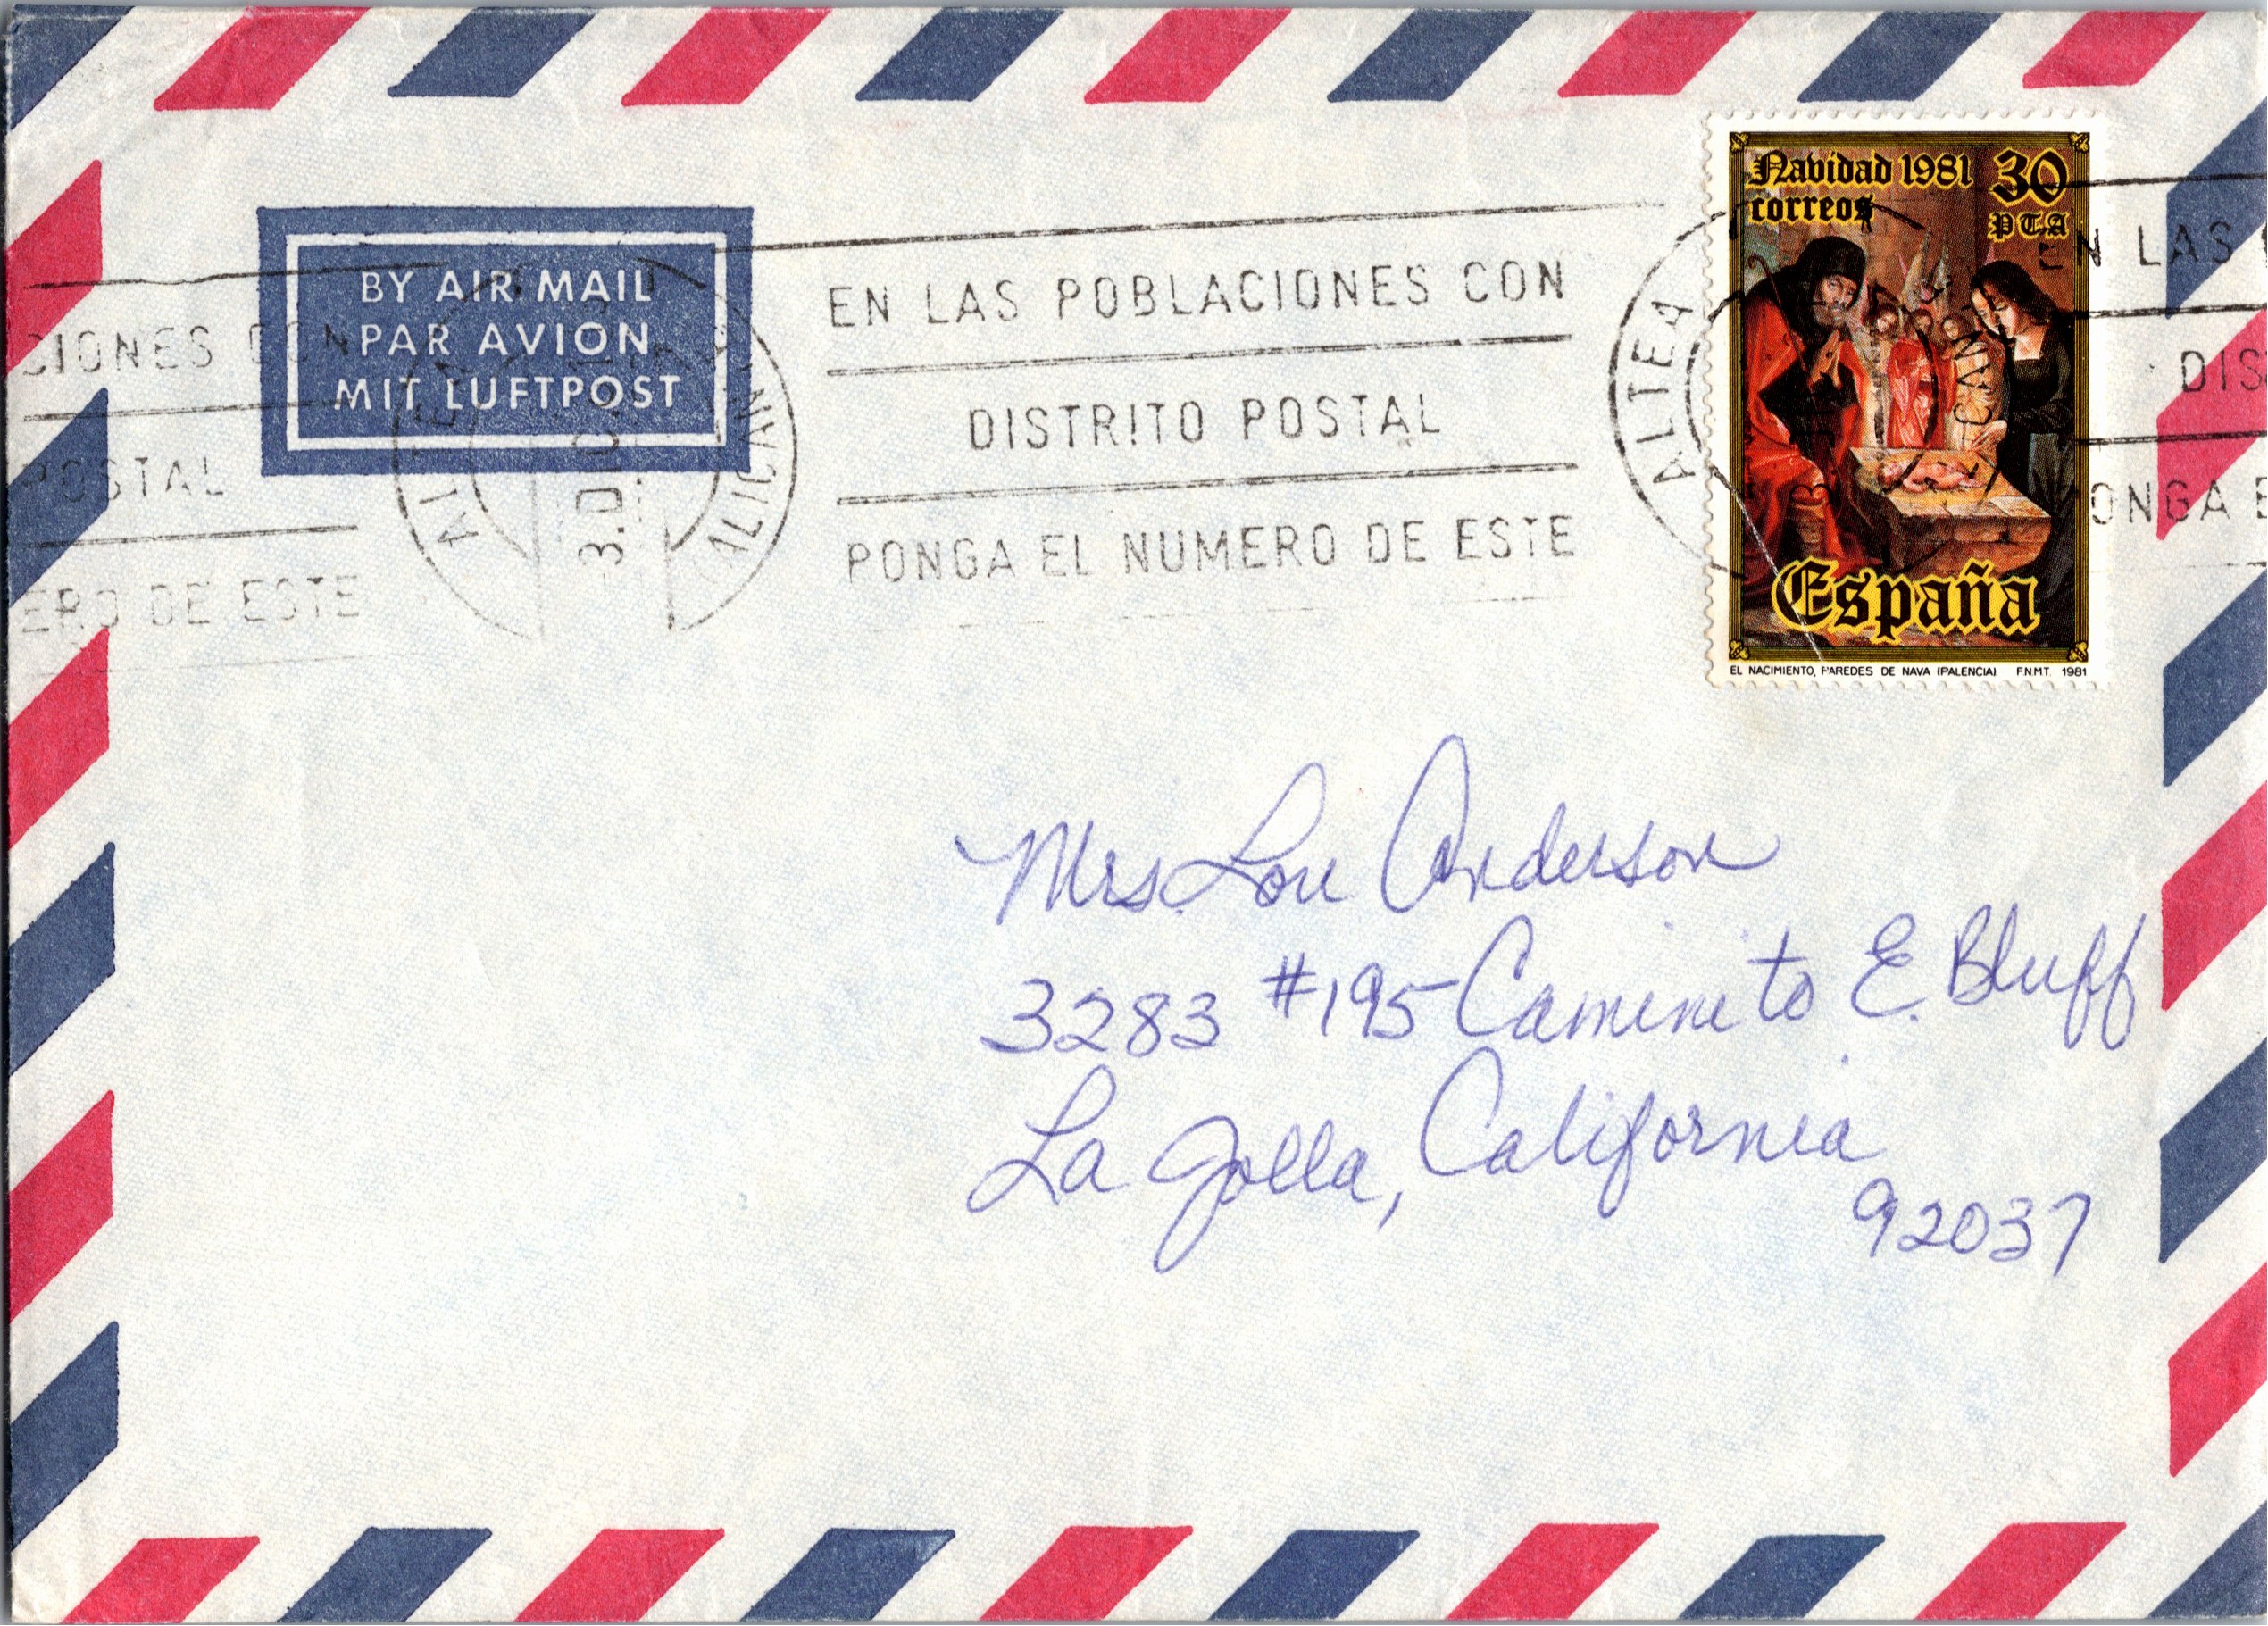 BY AIR MAIL
PAR AVION
MIT LUFTPOST
CIONES CON
POSTAL
ERO DE ESTE
ALTEA
-3.DIC
ALICAN
EN LAS POBLACIONES CON
DISTRITO POSTAL
PONGA EL NUMERO DE ESTE
ALTEA
ICAN
Navidad 1981 30
correos PTA
España
EL NACIMIENTO, PAREDES DE NAVA (PALENCIA). F.N.M.T. 1981
EN LAS
DIS
ONGA E
Mrs. Lou Anderson
3283 #195 Caminito E. Bluff
La Jolla, California
92037